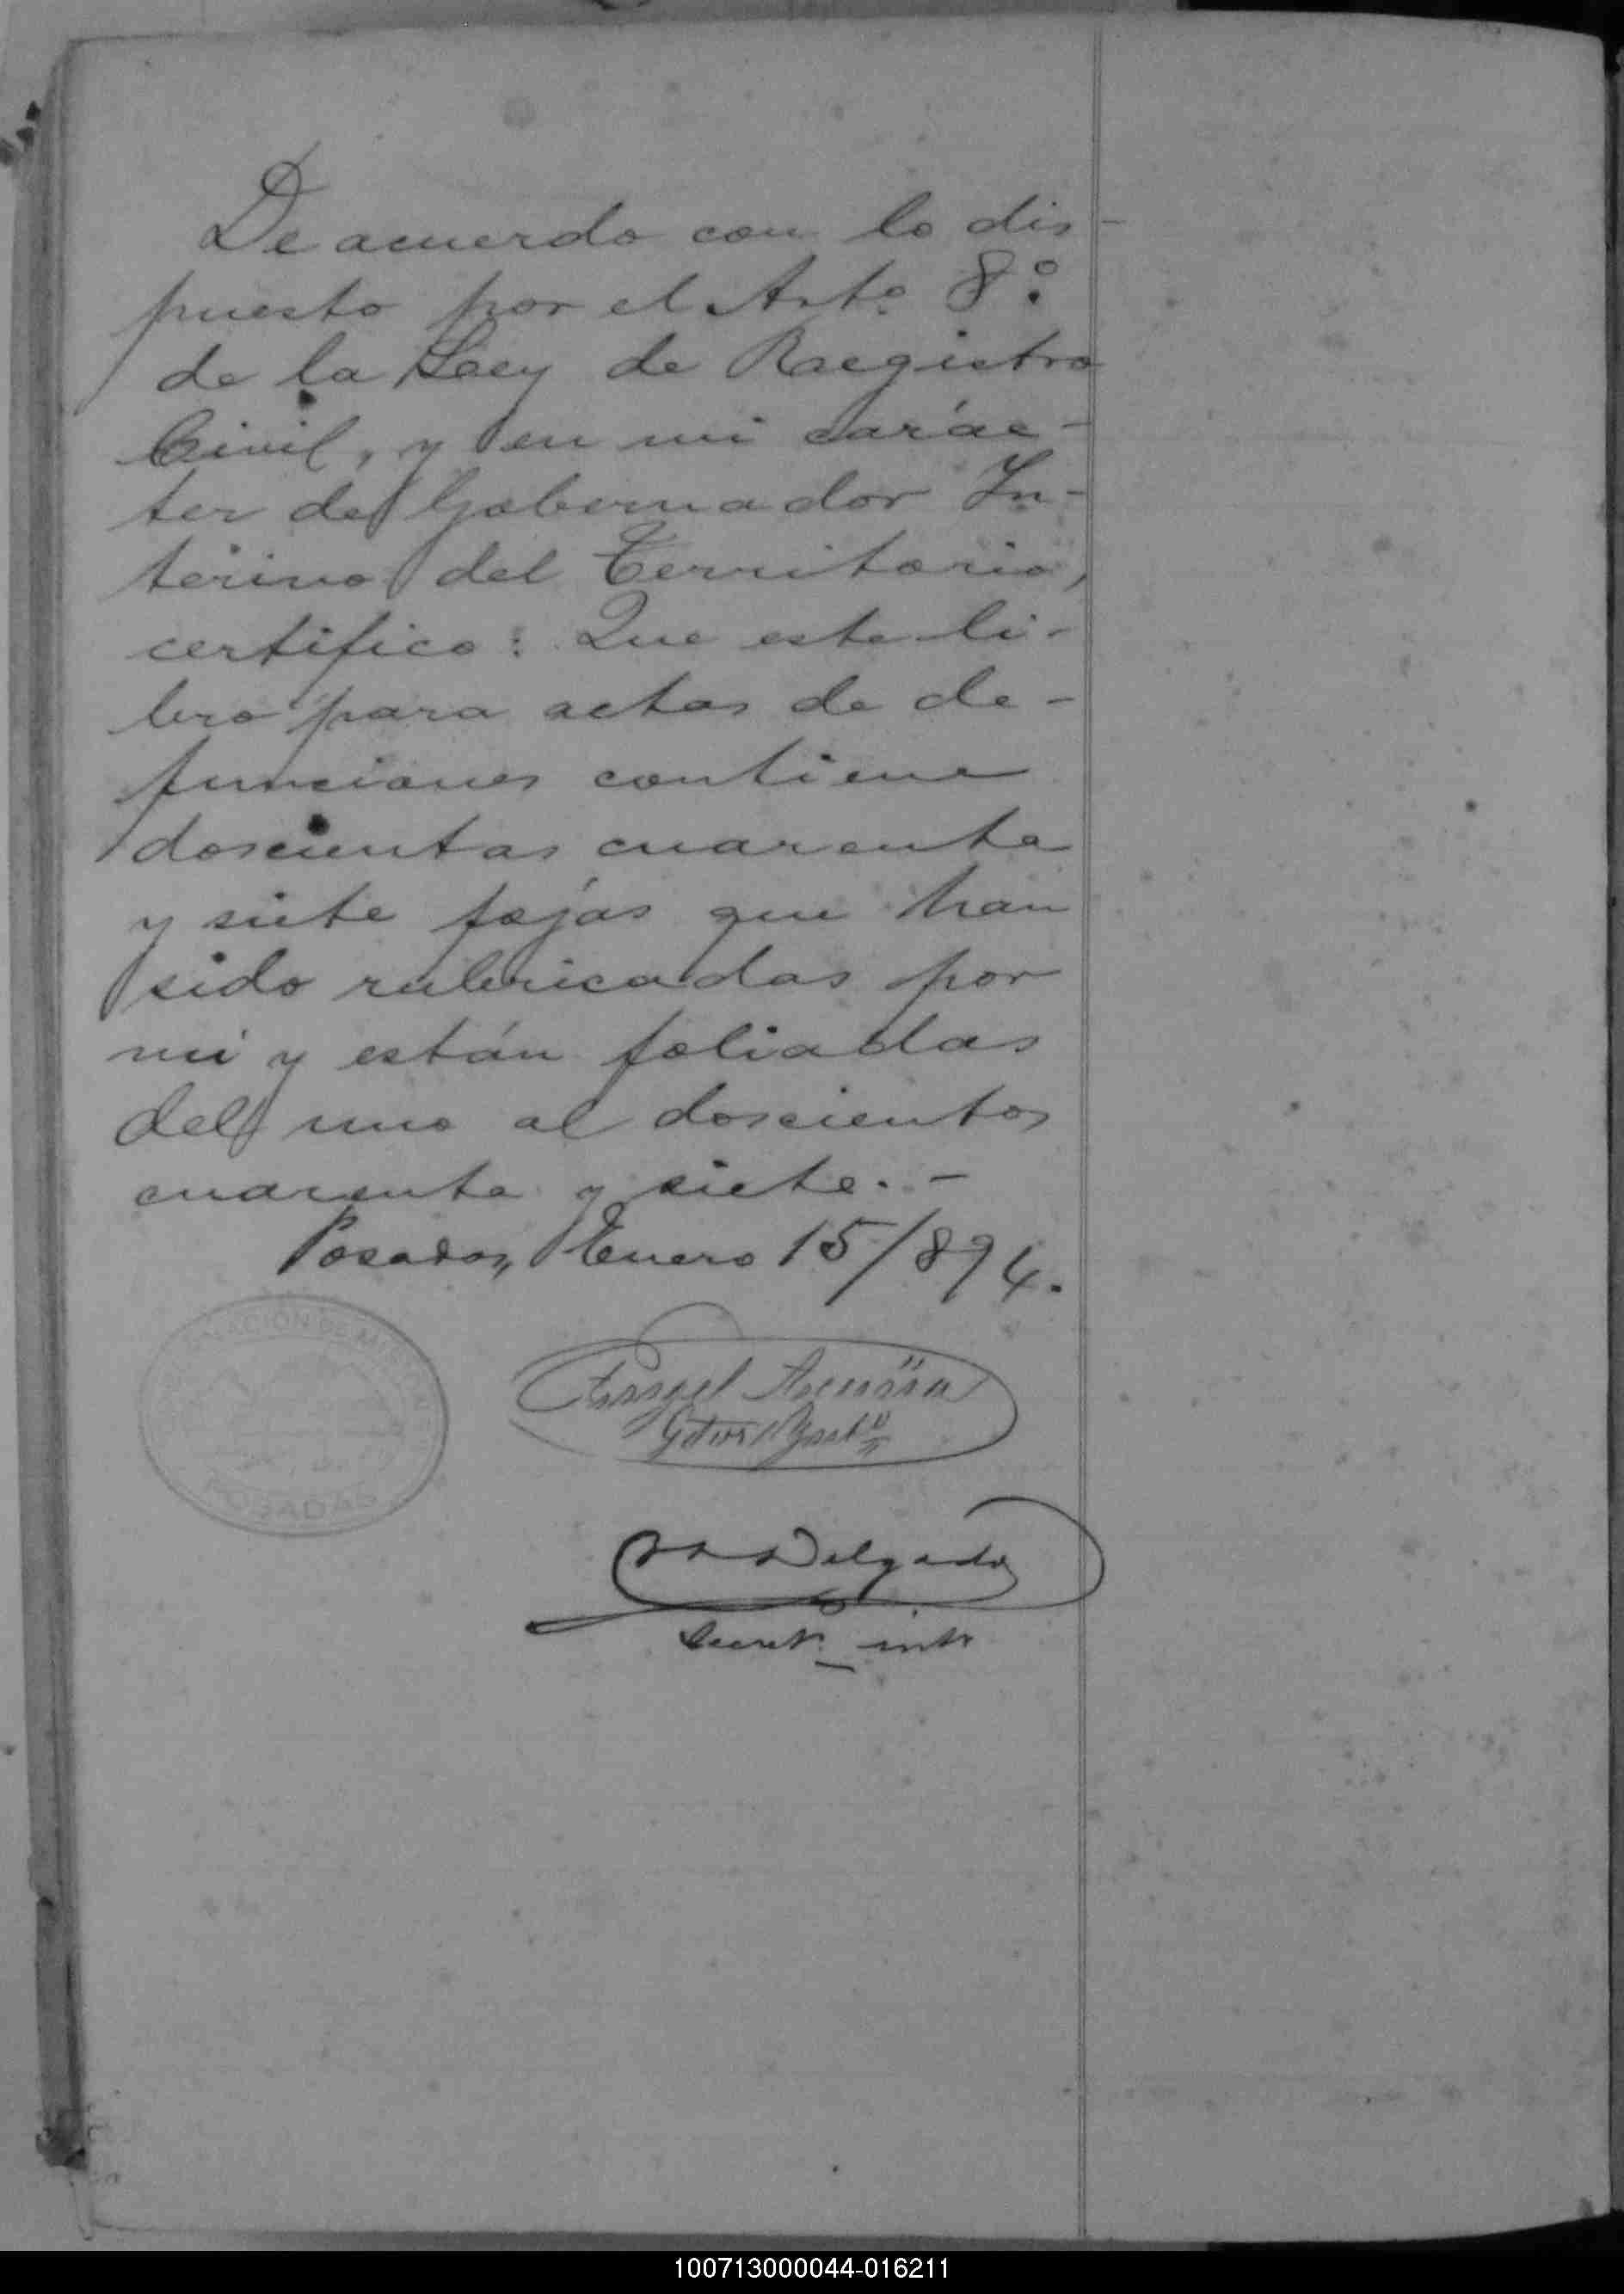 De acuerdo con lo dis-
puesto por el Arto. 8º.
de la Ley de Registro
Civil, y en mi carác-
ter de Gobernador In-
terino del Territorio,
certifico: Que este li-
bro para actas de de-
funciones contiene
doscientas cuarenta
y siete fojas que han
sido rubricadas por
mi y están foliadas
del uno al doscientos
cuarenta y siete. -
Posadas, Enero 15/894.
POSADAS
Delgado
Secret. int
100713000044-016211